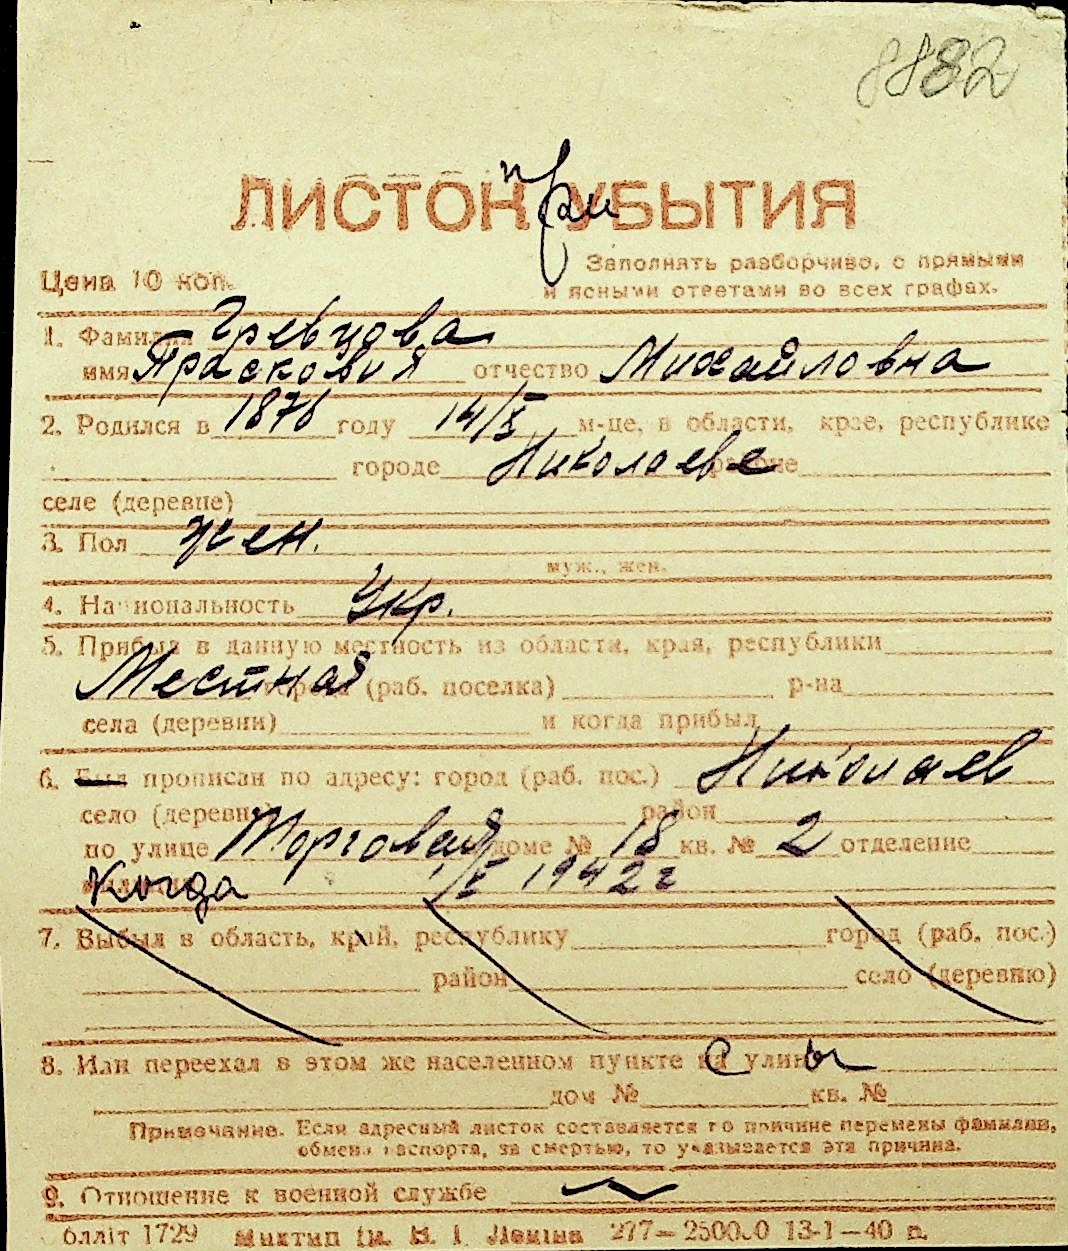 8882
ЛИСТОК при УБЫТИЯ
Цена 10 коп.
Заполнять разборчиво, с прямыми
и ясными ответами во всех графах.
1. Фамилия Гревцова
имя Прасковия отчество Михайловна
2. Родился в 1876 году 14/X м-це, в области, крае, республике
городе Николаеве районе
селе (деревне)
3. Пол жен.
муж., жен.
4. Национальность Укр.
5. Прибыл в данную местность из области, края, республики
Местная города (раб. поселка) р-на
села (деревни) и когда прибыл
6. Был прописан по адресу: город (раб. пос.) Николаев
село (деревня) район
по улице Торговая доме № 18 кв. № 2 отделение
Когда 1942 г
7. Выбыл в область, край, республику город (раб. пос.)
район село (деревню)
8. Или переехал в этом же населенном пункте с улицы
дом № кв. №
Примечание. Если адресный листок составляется по причине перемены фамилии,
обмена паспорта, за смертью, то указывается эта причина.
9. Отношение к военной службе
блліт 1729 Миктип ім. В. І. Леніна 277—25000 13-1—40 п.